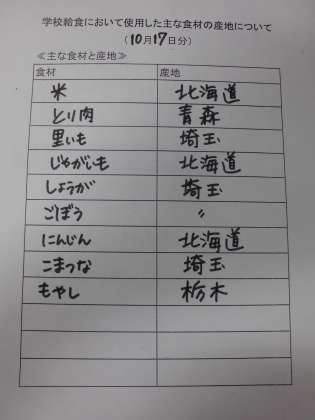 学校給食において使用した主な食材の産地について
(10月17日分)
≪主な食材と産地≫
食材 産地
米 北海道
とり肉 青森
里いも 埼玉
じゃがいも 北海道
しょうが 埼玉
ごぼう 〃
にんじん 北海道
こまつな 埼玉
もやし 栃木